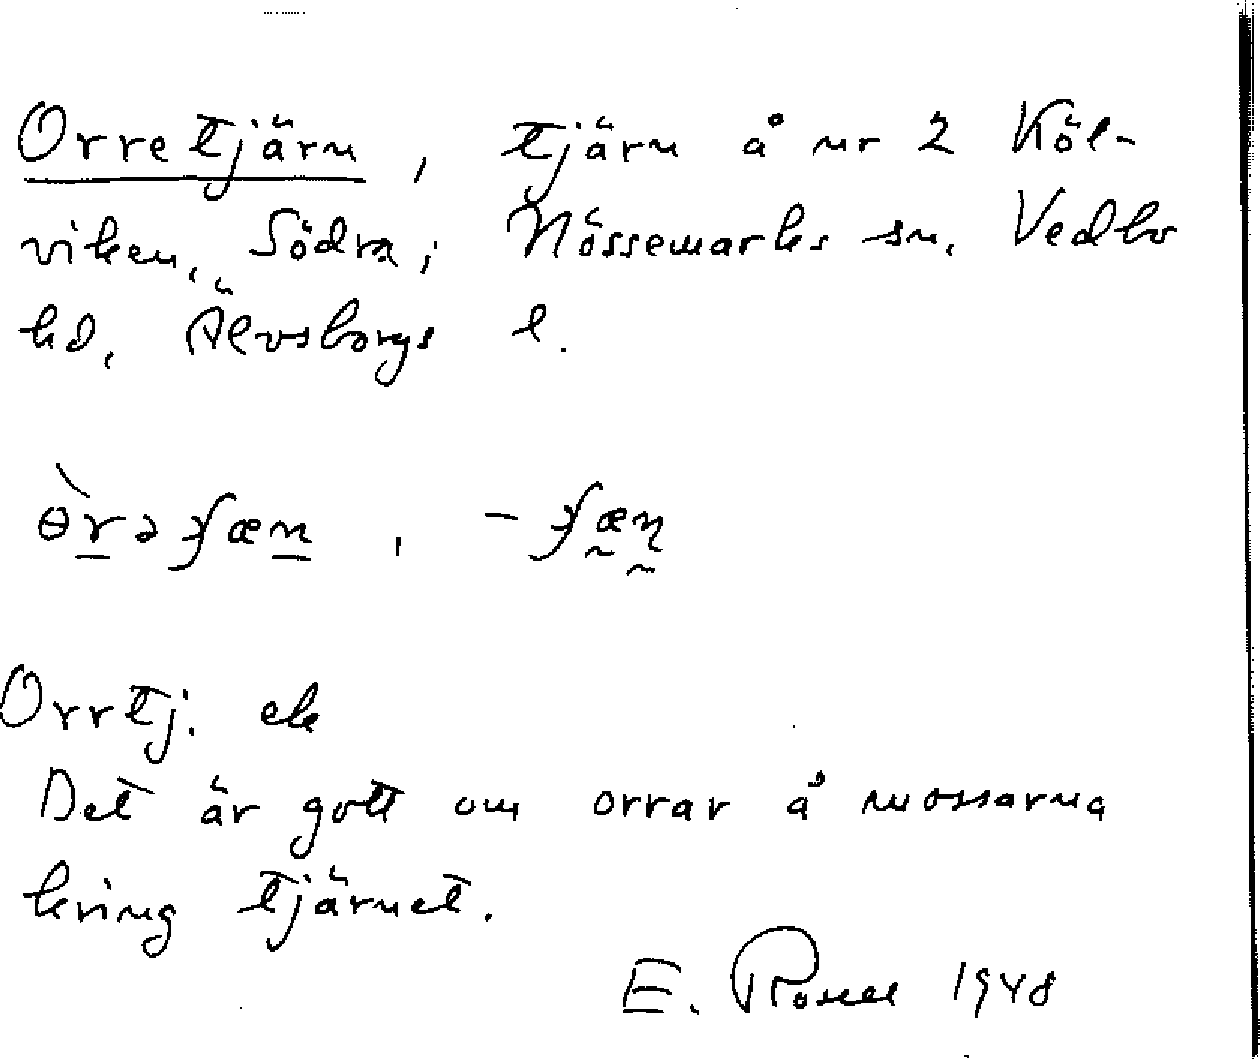 Orretjärn, tjärn å nr 2 Köl-
viken, Södra; Nössemarks sn. Vedbo
hd, Älvsborgs l.
Orrtj. ek
Det är gott om orrar å mossarna
kring tjärnet.
E. Rosell 1948